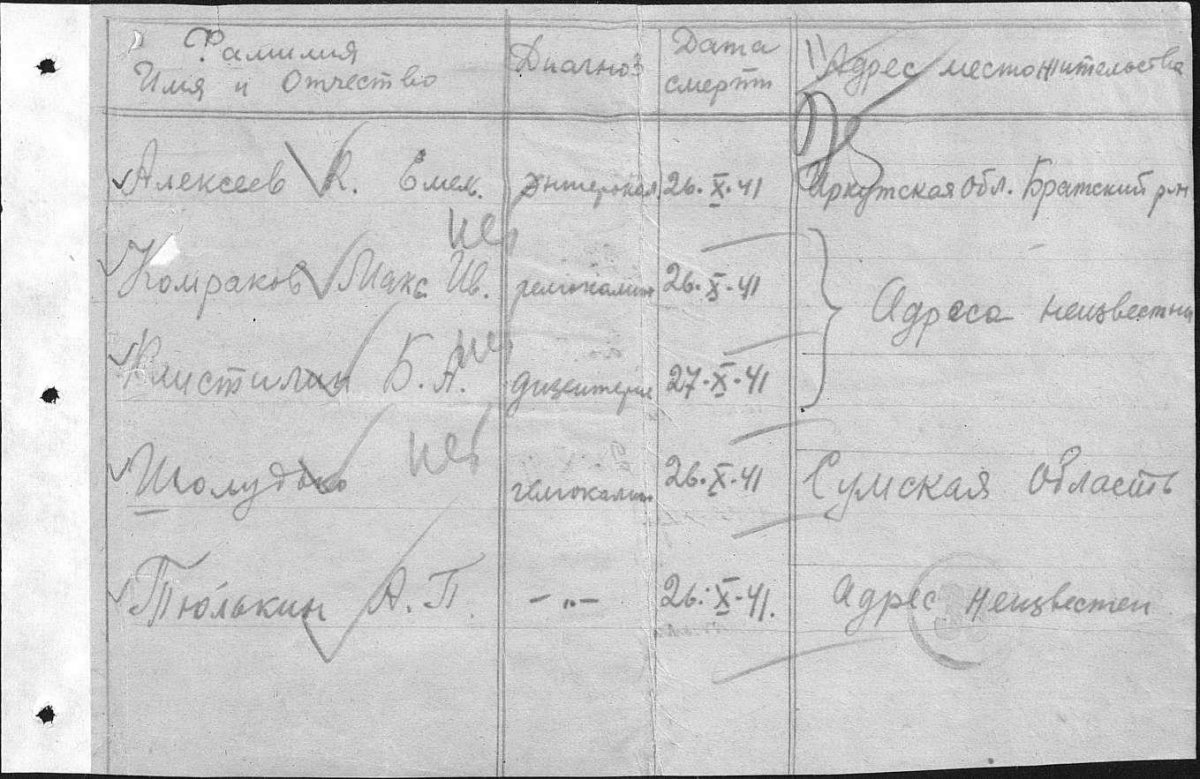 Фамилия
Имя и Отчество
Диагноз
Дата
смерти
1) Адрес местожительства
Алексеев К. Емел. энтерокол. 26.X.41 Иркутская обл. Братский р-н
нет
Комраков Макс Ив. гемоколит 26.X.41
Адреса неизвестны
нет
Б. А. дизентерия 27.X.41
нет
Шолудько гемоколит 26.X.41 Сумская область
Тюлькин А. П. -"- 26.X.41. Адрес неизвестен